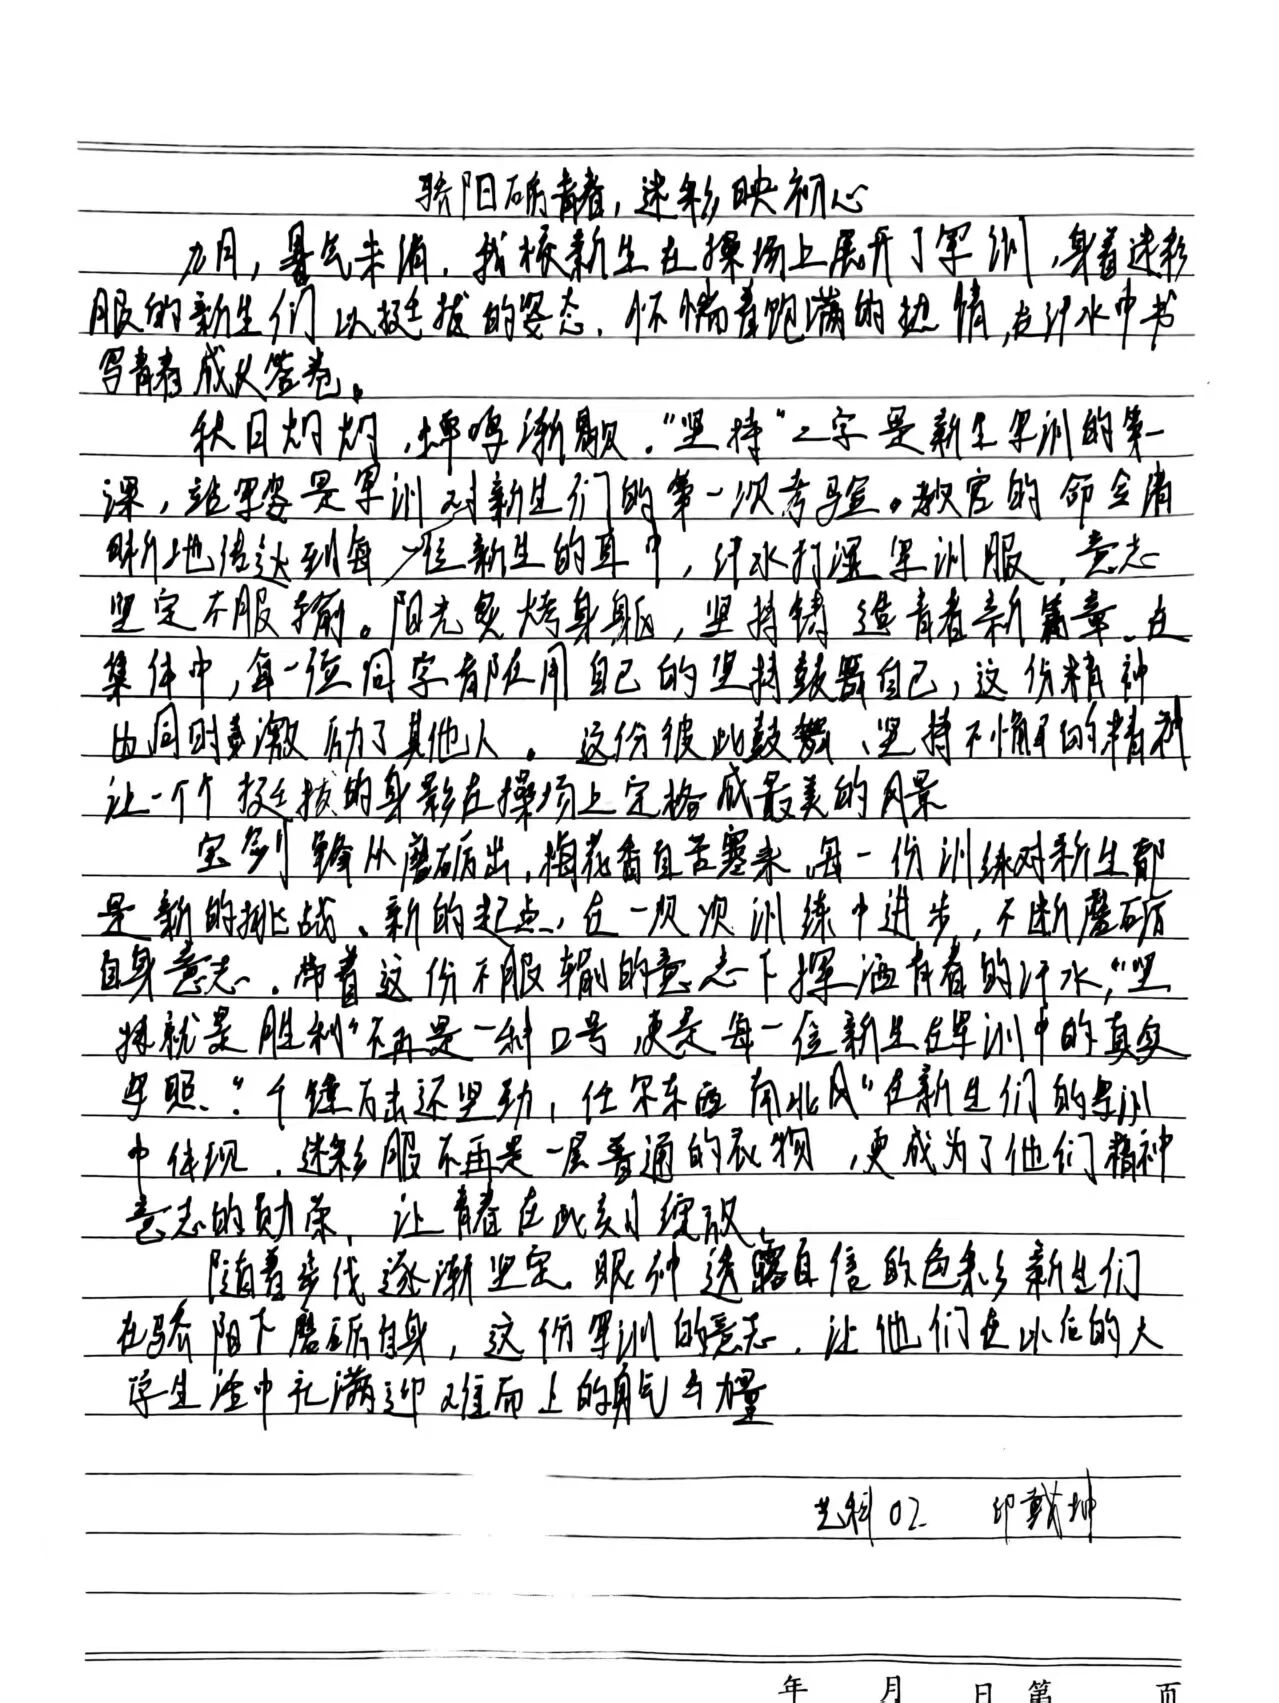 骄阳砺青春，迷彩映初心
九月，暑气未消，我校新生在操场上展开了军训，身着迷彩
服的新生们以挺拔的姿态，怀惴着饱满的热情，在汗水中书
写青春成长答卷。
秋日灼灼，蝉鸣渐歇，“坚持“二字是新生军训的第一
课，站军姿是军训对新生们的第一次考验。教官的命令清
晰地传达到每一位新生的耳中，汗水打湿军训服，意志
坚定不服输。阳光炙烤身躯，坚持铸造青春新篇章，在
集体中，每一位同学都在用自己的坚持鼓舞自己，这份精神
也同时激励了其他人。这份彼此鼓舞、坚持不懈的精神
让一个个挺拔的身影在操场上定格成最美的风景
宝剑锋从磨砺出，梅花香自苦寒来，每一份训练对新生都
是新的挑战、新的起点，在一次次训练中进步，不断磨砺
自身意志。带着这份不服输的意志下操洒青春的汗水，“坚
持就是胜利“不再是一种口号，更是每一位新生在军训中的真实
写照。“千锤万击还坚劲，任尔东西南北风“在新生们的军训
中体现，迷彩服不再是一层普通的衣物，更成为了他们精神
意志的勋荣，让青春在此刻绽放，
随着步伐逐渐坚定，眼神透露自信的色彩，新生们
在骄阳下磨砺自身，这份军训的意志，让他们在以后的大
学生活中充满迎难而上的勇气与力量
艺科02 印戟坤
年 月 日 第 页